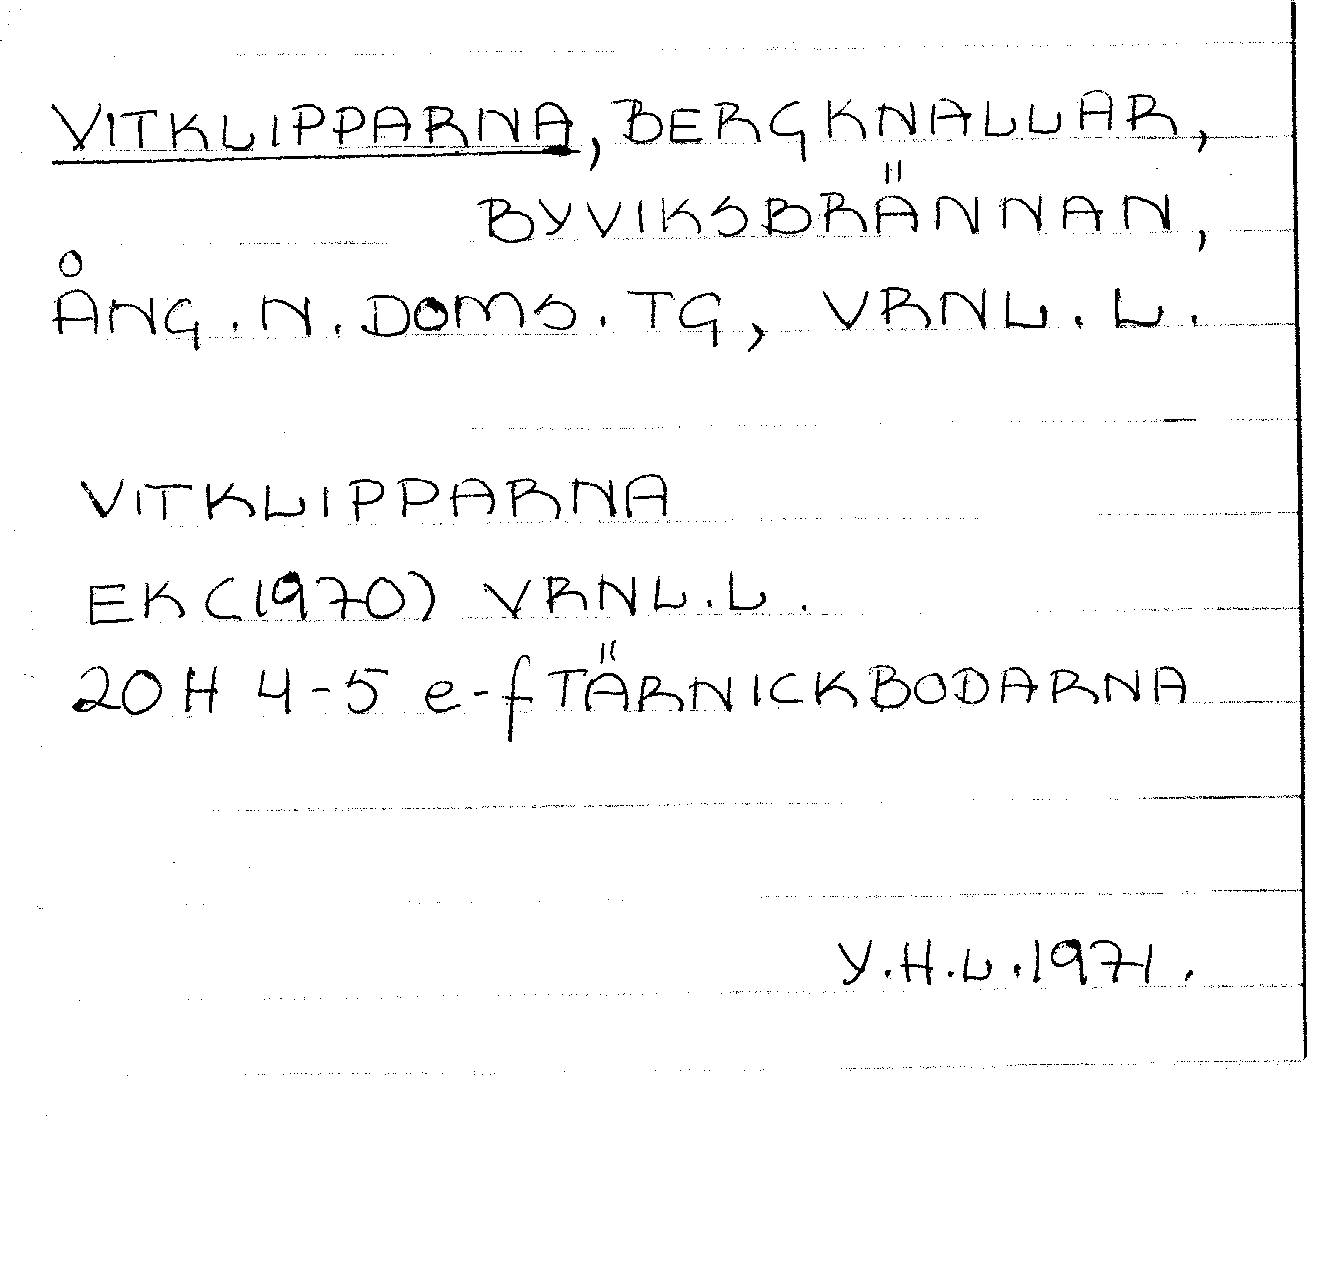 VITKLIPPARNA, BERGKNALLAR,
BYVIKSBRÄNNAN,
ÅNG.N.DOMS.TG, VRNL.L.
VITKLIPPARNA
EK(1970) VRNL.L.
20H 4-5 e-f TÄRNICKBODARNA
Y.H.L.1971.